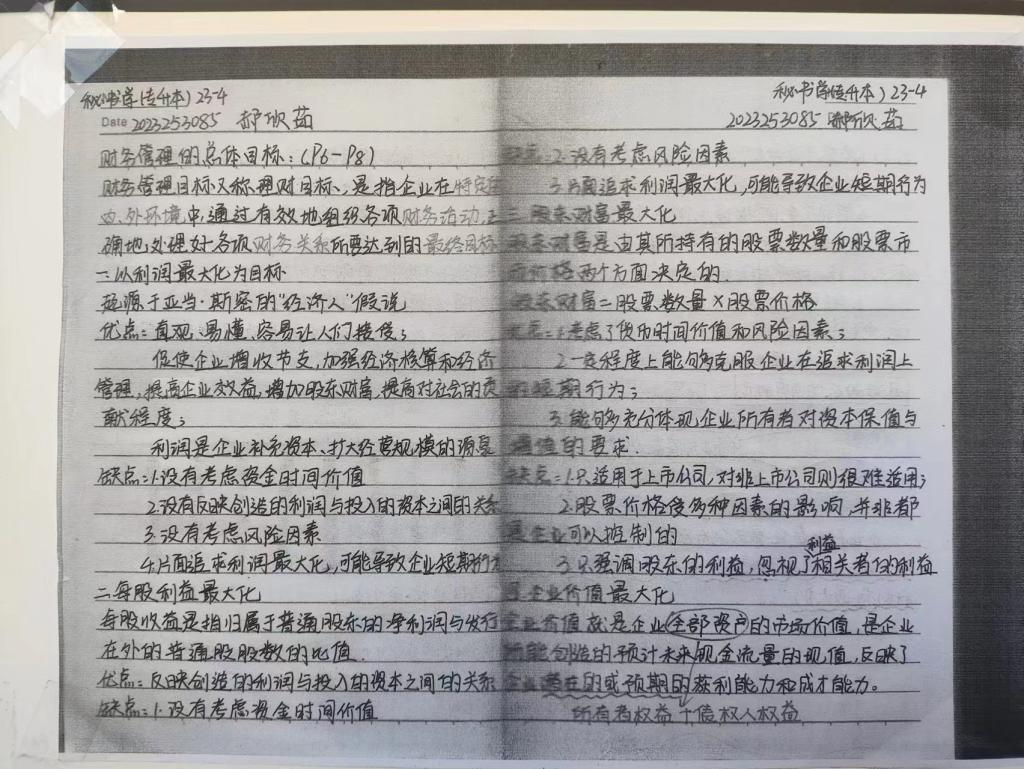 秘书学(专升本) 23-4
Date 2023253085 郝欣茹
财务管理的总体目标:(P6-P8)
财务管理目标又称理财目标,是指企业在特定的
内、外环境中,通过有效地组织各项财务活动,正
确地处理好各项财务关系所要达到的最终目标
一.以利润最大化为目标
起源于亚当·斯密的"经济人"假说
优点:直观、易懂、容易让人们接受;
促使企业增收节支,加强经济核算和经济
管理,提高企业效益,增加股东财富,提高对社会的贡
献程度;
利润是企业补充资本、扩大经营规模的源泉
缺点:1.没有考虑资金时间价值
2.没有反映创造的利润与投入的资本之间的关系
3.没有考虑风险因素
4.片面追求利润最大化,可能导致企业短期行为
二.每股利益最大化
每股收益是指归属于普通股东的净利润与发行
在外的普通股股数的比值.
优点:反映创造的利润与投入的资本之间的关系
缺点:1.没有考虑资金时间价值
秘书学(专升本) 23-4
2023253085 郝欣茹
2.没有考虑风险因素
3.片面追求利润最大化,可能导致企业短期行为
三.股东财富最大化
股东财富是由其所持有的股票数量和股票市
场价格两个方面决定的.
股东财富=股票数量×股票价格
优点:1.考虑了货币时间价值和风险因素;
2.一定程度上能够克服企业在追求利润上
的短期行为;
3.能够充分体现企业所有者对资本保值与
增值的要求.
缺点:1.只适用于上市公司,对非上市公司则很难适用;
2.股票价格受多种因素的影响,并非都
是企业可以控制的
3.只强调股东的利益,忽视了利益相关者的利益
企业价值最大化
企业价值就是企业全部资产的市场价值,是企业
所能创造的预计未来现金流量的现值,反映了
企业潜在的或预期的获利能力和成才能力。
所有者权益+债权人权益